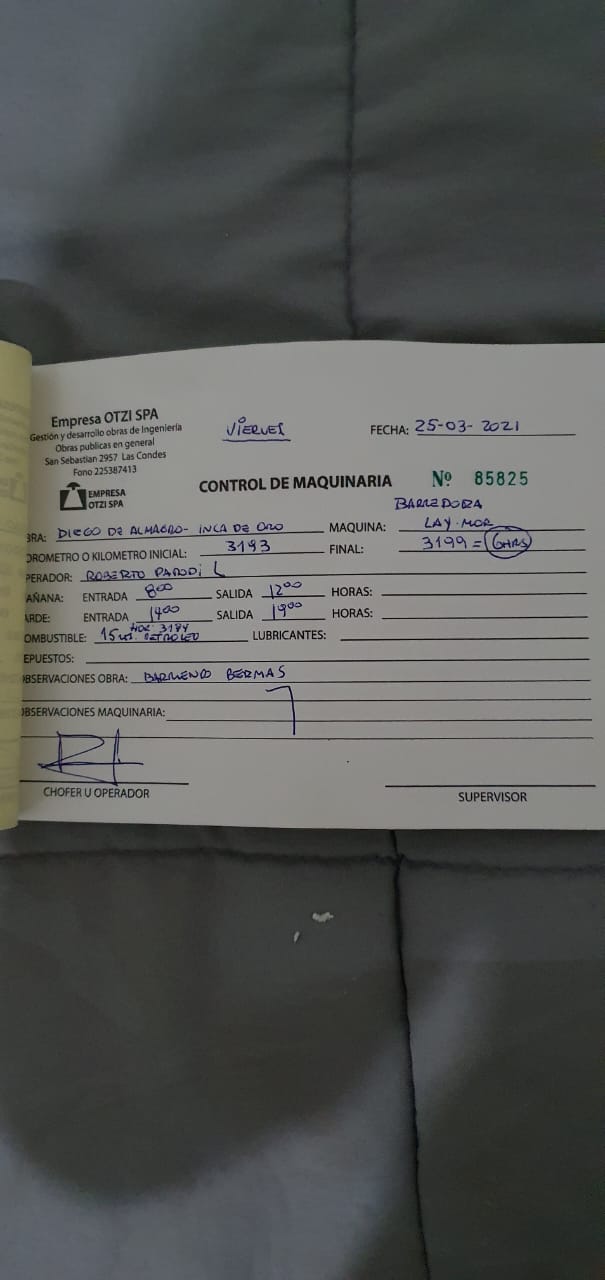 Empresa OTZI SPA
Gestión y desarrollo obras de Ingeniería
Obras publicas en general
San Sebastian 2957 Las Condes
Fono 225387413
EMPRESA
OTZI SPA
VIERNES
FECHA: 25-03-2021
CONTROL DE MAQUINARIA Nº 85825
BARREDORA
BRA: DIEGO DE ALMAGRO- INCA DE ORO MAQUINA: LAY-MOR
OROMETRO O KILOMETRO INICIAL: 3193 FINAL: 3199 = 6HRS
PERADOR: ROBERTO PARODI L
AÑANA: ENTRADA 8:00 SALIDA 12:00 HORAS:
ARDE: ENTRADA 14:00 SALIDA 19:00 HORAS:
OMBUSTIBLE: 15 PETROLEO LUBRICANTES:
EPUESTOS:
BSERVACIONES OBRA: BARRIENDO BERMAS
OBSERVACIONES MAQUINARIA:
CHOFER U OPERADOR
SUPERVISOR